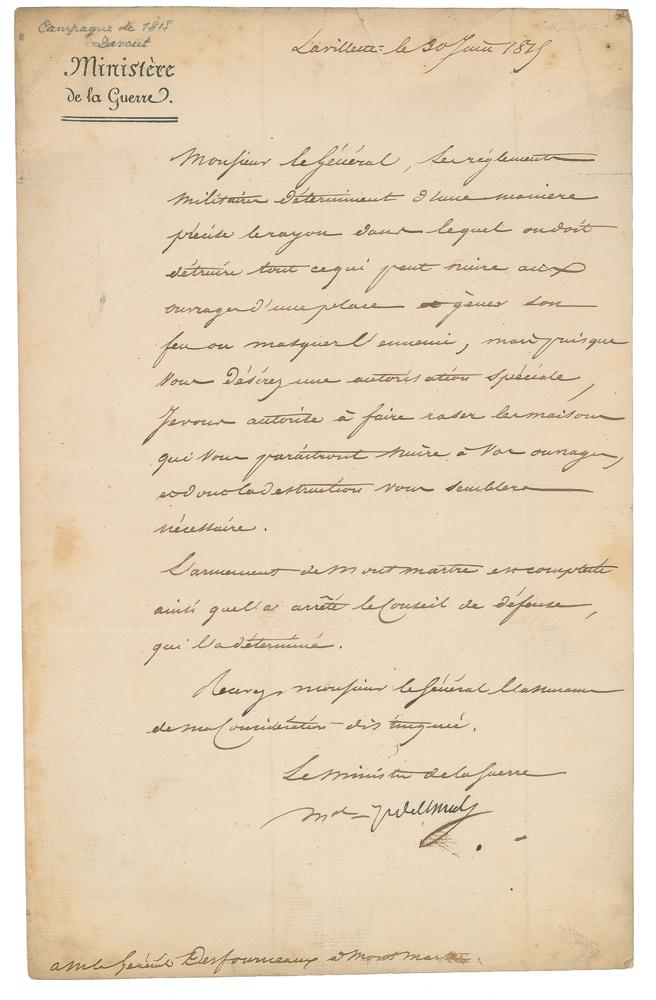 Campagne de 1815
Davout
Ministère
de la Guerre.
Lavillette le 30 Juin 1815
Monsieur le Général, Les réglements
militaires déterminent d'une maniere
précise le rayon dans lequel on doit
détruire tout ce qui peut nuire aux
ouvrages d'une place et gêner son
feu ou masquer l'ennemi, mais puisque
Vous désirez une autorisation spéciale,
Je vous autorise à faire raser les maisons
qui Vous paraitront nuire à Vos ouvrages,
et dont la destruction vous semblera
nécessaire.
L'armement de Montmartre est complette
ainsi que l'a arrêté le Conseil de défense,
qui l'a déterminé.
Recevez, monsieur le Général l'assurance
de ma Considération distinguée.
Le Ministre de la Guerre
Mal
a M. le Général Desfourneaux à Montmartre